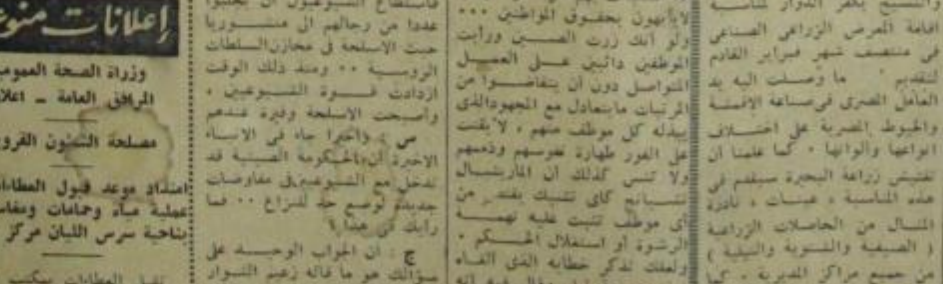 والنسيج بكفر الدوار لمناسبة
اقامة المعرض الزراعى الصناعى
فى منتصف شهر فبراير القادم
لتقديم ما وصلت اليه يد
العامل المصرى فى صناعة الاقمشة
والخيوط المصرية على اختلاف
انواعها والوانها ٠ كما علمنا ان
تفتيش زراعة البحيرة سيقدم فى
هذه المناسبة ، عينات ، نادرة
المثال من الحاصلات الزراعية
( الصيفية والشتوية والنيلية )
من جميع مراكز المديرية ٠ كما
لايأبهون بحقوق المواطنين ٠٠٠
ولو أنك زرت الصين ورأيت
الموظفين دائبين على العمل
المتواصل دون أن يتقاضوا من
المرتبات مايتعادل مع المجهود الذى
يبذله كل موظف منهم ، لايقنت
على الفور طهارة نفوسهم وذممهم
ولا تنس كذلك ان الماريشال
تشيانج كاى تشيك
أى موظف تثبت عليه تهمة
الرشوة او استغلال الحكم ٠
ولعلك تذكر خطابه الذى القاه
فاستطاع الشيوعيون ان
عددا من رجالهم الى منشوريا
حيث الاسلحة فى مخازن السلطات
الروسية ٠٠ ومنذ ذلك الوقت
ازدادت قوة الشيوعيين ،
وأصبحت الاسلحة وفيرة عندهم
س : وأخيرا جاء فى الانباء
الاخيرة أن الحكومة الصينية قد
تدخل مع الشيوعيين فى مفاوضات
جديدة لوضع حد للنزاع ٠٠ فما
رأيك فى هذا ؟
ج : ان الجواب الوحيد على
سؤالك هو ما قاله زعيم الثوار
إعلانات منو
وزراة الصحة العمومي
المرافق العامة ــ اعلا
مصلحة الشئون القرو
امتداد موعد قبول العطاءا
عملية مياه وحمامات ومغاس
بناحية سرس الليان مركز
تقبل العطاءات بمكتب